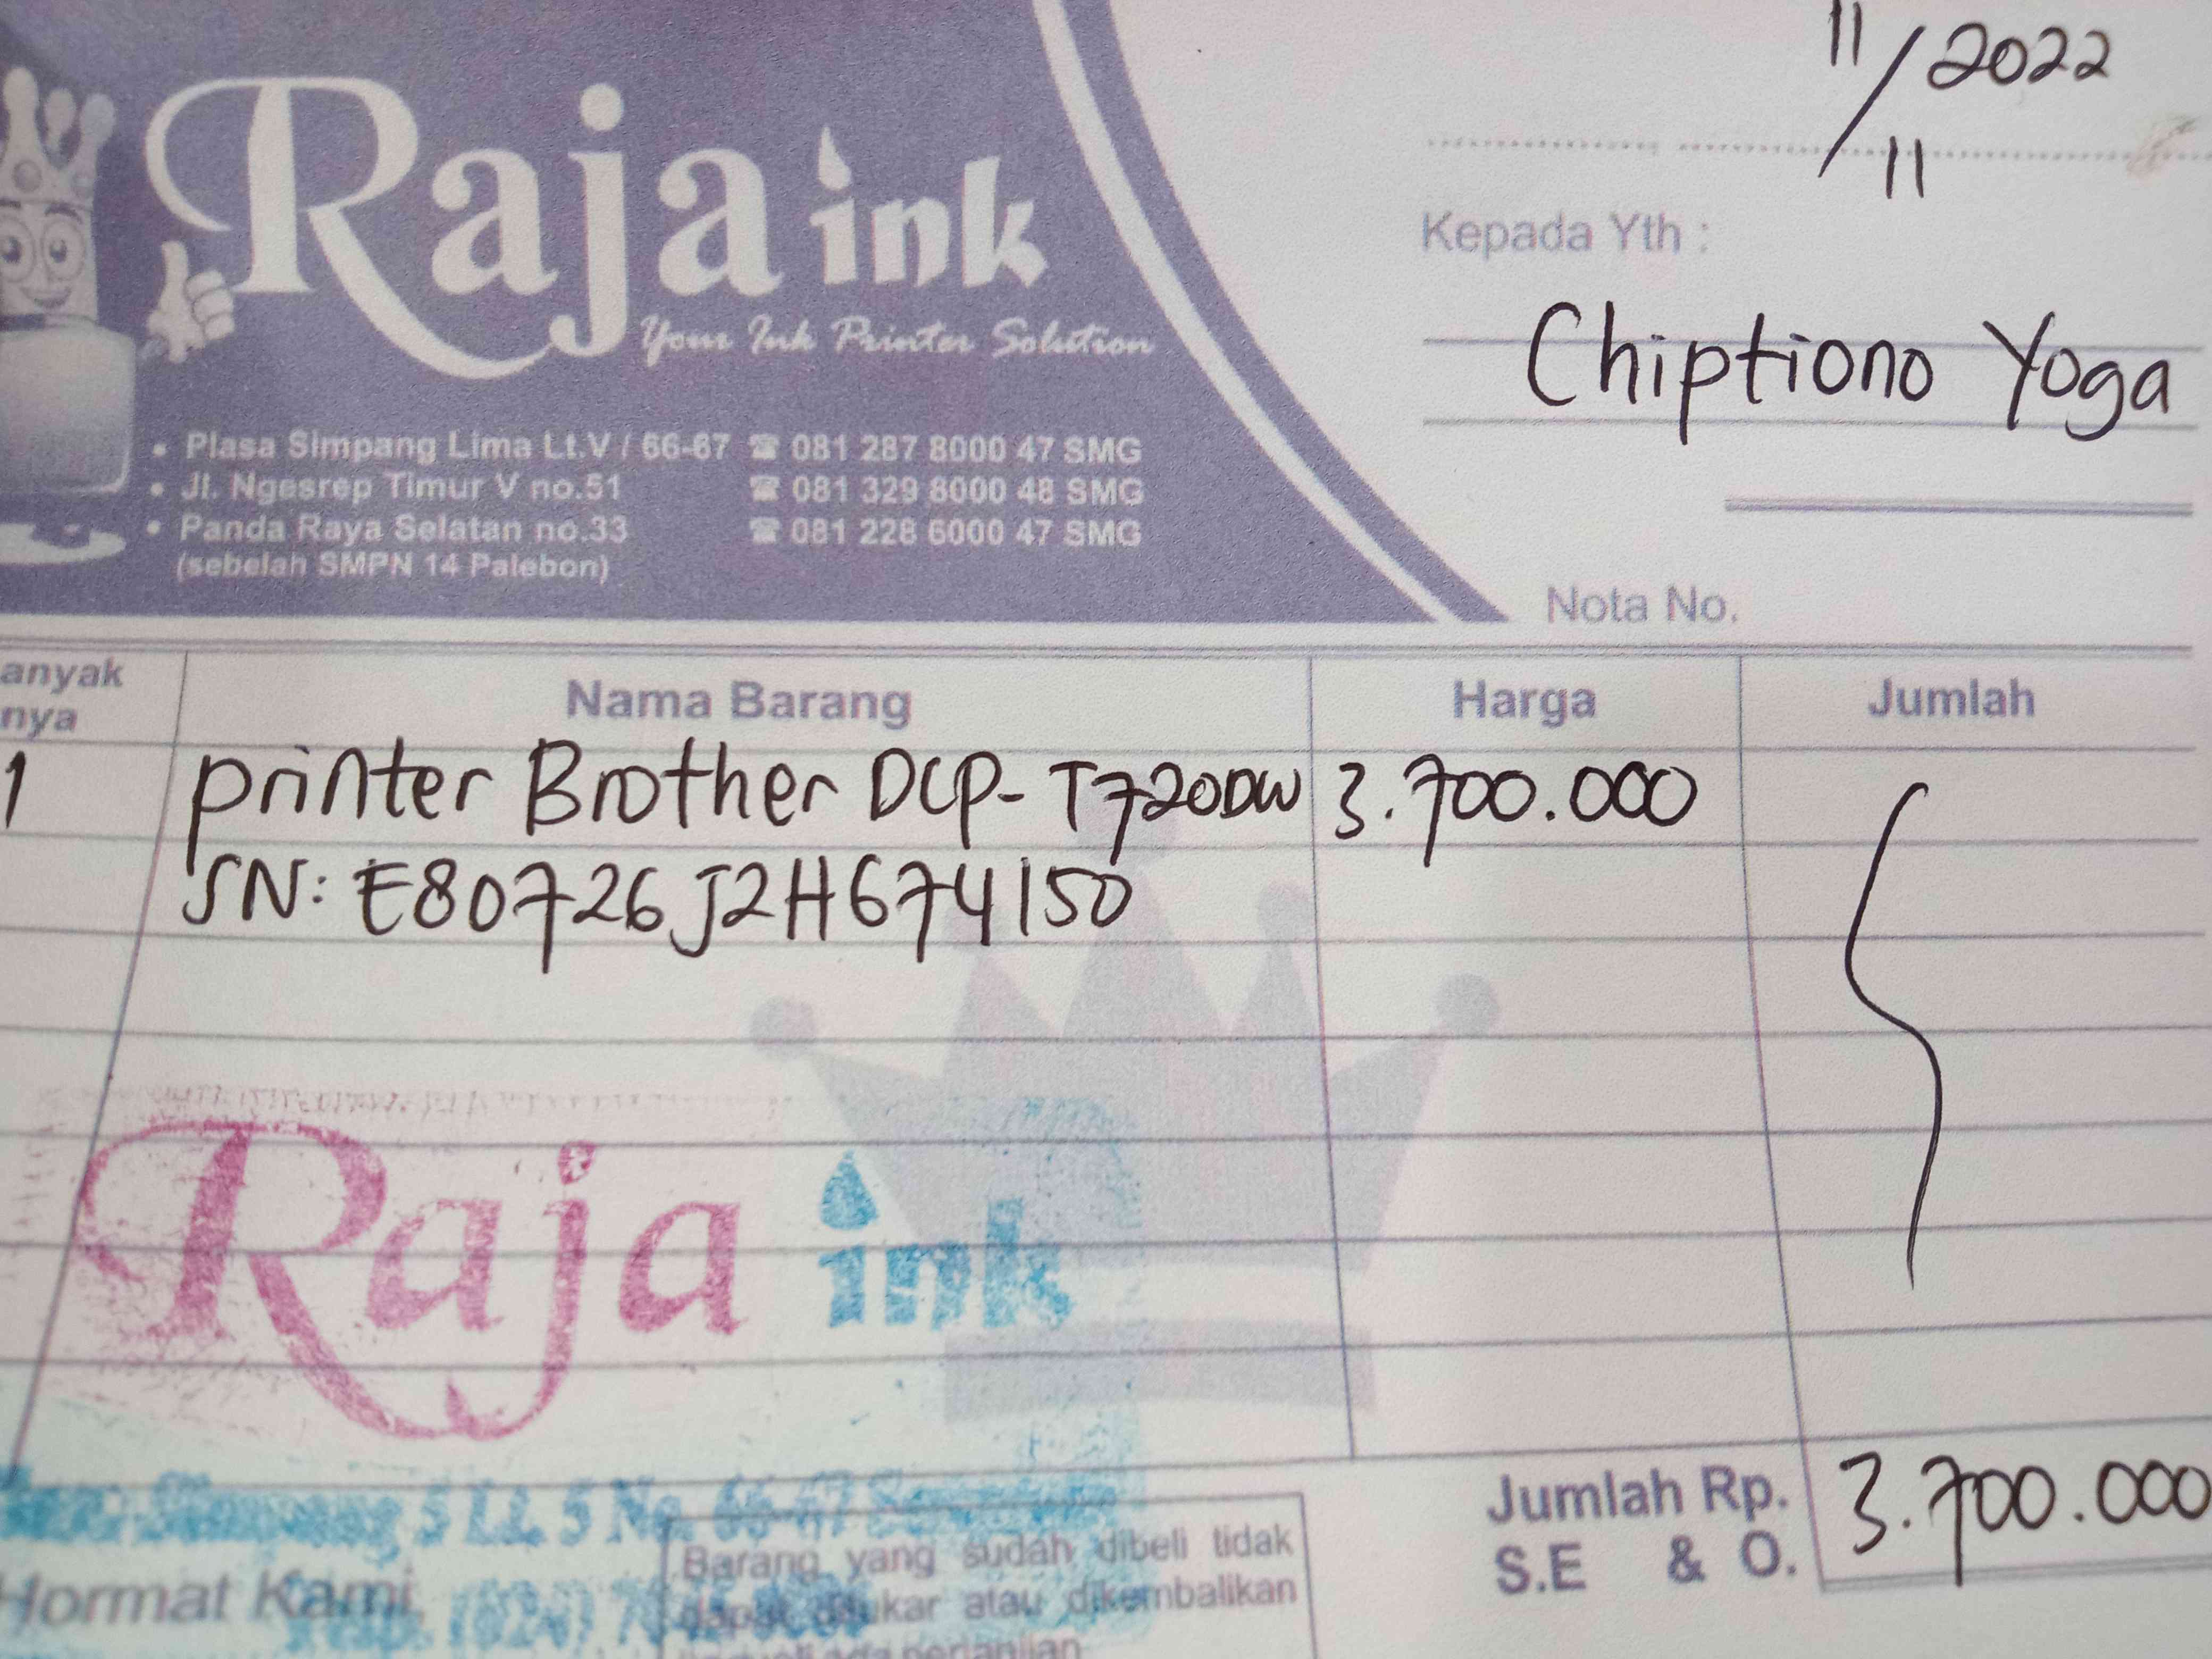 Raja ink
Your Ink Printer Solution
• Plasa Simpang Lima Lt.V / 66-67 ☎ 081 287 8000 47 SMG
• Jl. Ngesrep Timur V no.51 ☎ 081 329 8000 48 SMG
• Panda Raya Selatan no.33 ☎ 081 228 6000 47 SMG
(sebelah SMPN 14 Palebon)
11/11 2022
Kepada Yth :
Chiptiono Yoga
Nota No.
anyak
nya
Nama Barang Harga Jumlah
1 printer Brother DCP-T720DW 3.700.000
SN: E80726J2H674150
Raja ink
5 Lt. 5 No. 66-67
Hormat Kami,
(024)
Barang yang sudah dibeli tidak
dapat ditukar atau dikembalikan
Jumlah Rp. 3.700.000
S.E & O.